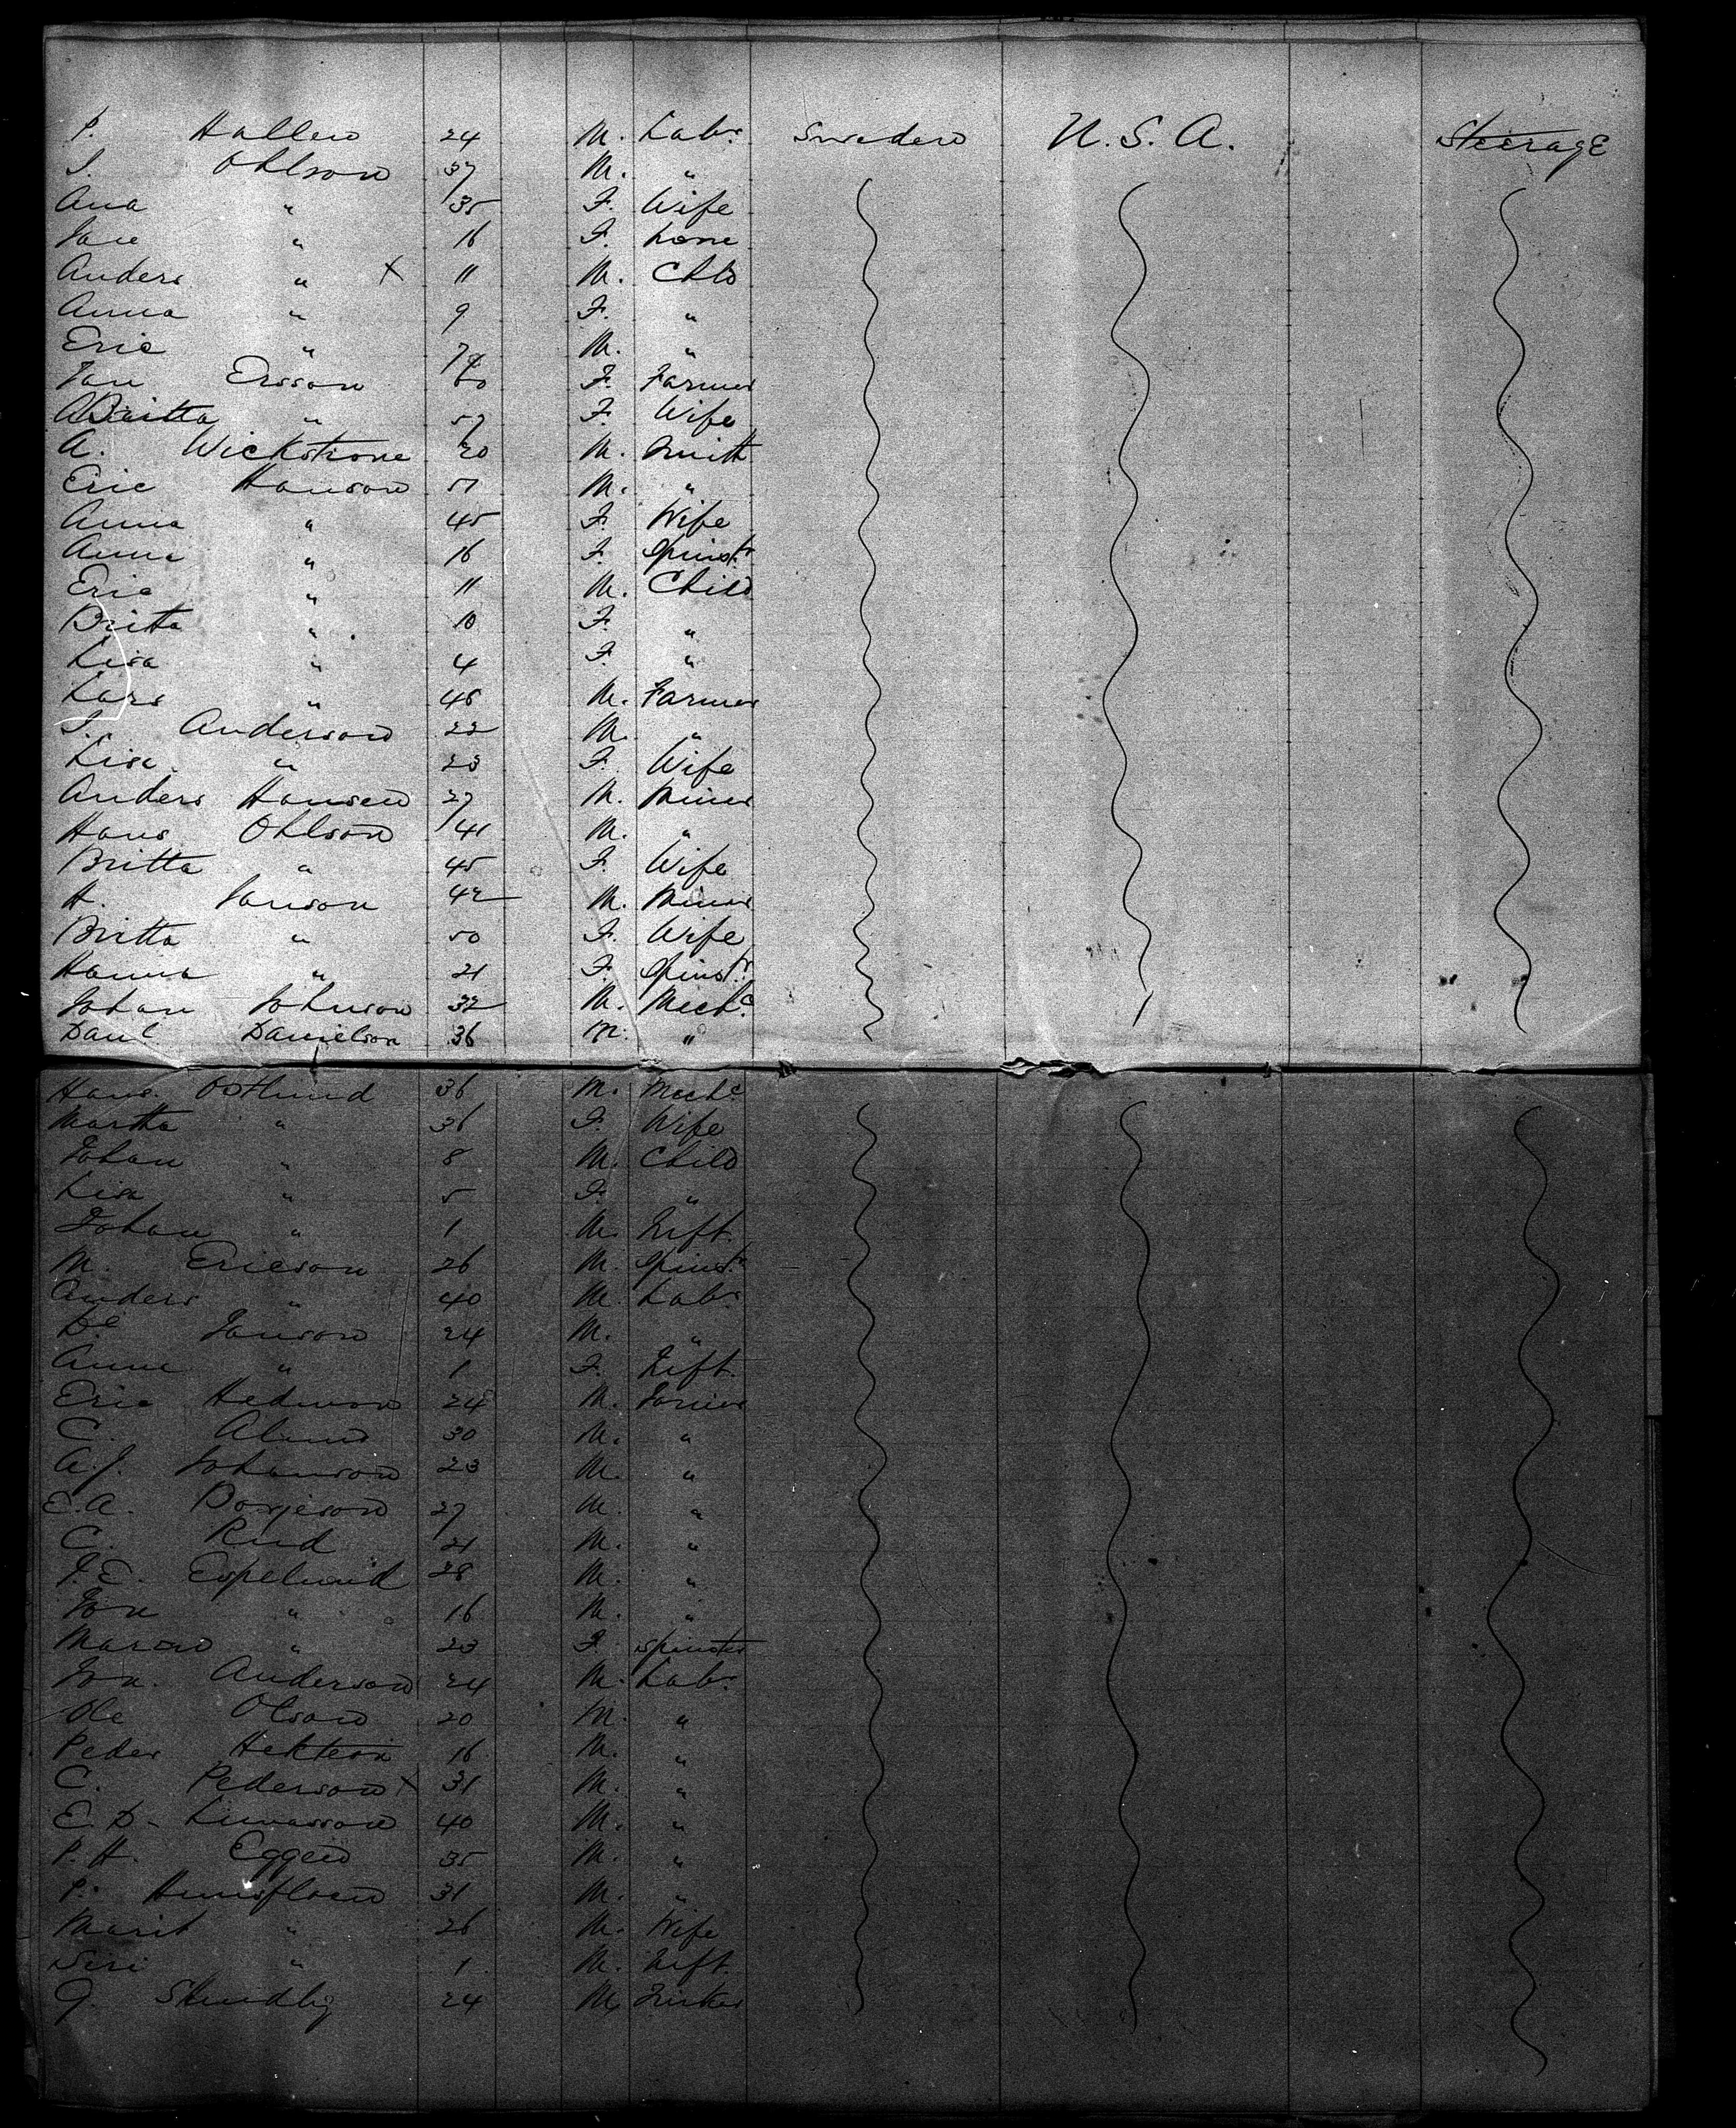 P. Hallen 24 M. Labr. Sweden U.S.A. Steerage
J. Ohlson 37 M. "
Ana " 35 F. Wife
" 16 F. none
Anders " X 11 M. Chld
Anna " 9 F. "
Eric " 7 M. "
Jan Ersson 60 F. Farmer
Britta " 57 F. Wife
A. Wickstrone 20 M. Smith
Eric Hanson 51 M. "
Anna " 45 F. Wife
Anna " 16 F. Spinstr
Eric " 11 M. Child
Britta " 10 F. "
Lisa " 4 F. "
Lars " 48 M. Farmer
J. Anderson 22 M. "
Lisa " 23 F. Wife
Anders Hansen 27 M. Miner
Hans Ohlson 41 M. "
Britta " 45 F. Wife
H. Janson 42 M. Miner
Britta " 50 F. Wife
Hanna " 21 F. Spinstr
Johan Johnson 32 M. Mechc
Danl Danielson 36 M. "
Hans Ostlund 36 M. Mechc
Martha " 36 F. Wife
Johan " 8 M. Child
Lisa " 5 F. "
Johan " 1 M. Inft.
M. Ericson 26 M. Spinstr
Anders " 40 M. Labr
Janson 24 M. "
Anna " 1 F. Inft.
Eric Hedman 24 M. Farmer
C. 30 M. "
A.J. Johanson 23 M. "
E.A. Borjeson 27 M. "
C. Rud 21 M. "
J.E. Espelund 28 M. "
Jon " 16 M. "
" 23 F. Spinster
Jon. Anderson 24 M. Labr.
Ole Olson 20 M. "
Peder 16 M. "
C. Pederson X 31 M. "
E.D. 40 M. "
P.H. Eggen 35 M. "
P. 31 M. "
Marit " 26 M. Wife
Siri " 1 M. Inft.
G. 24 M.